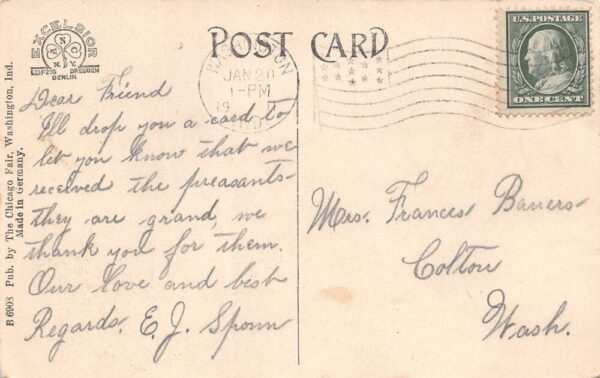 EXCELSIOR
N O N Y
LEIPZIG DRESDEN
BERLIN
POST CARD
WASHINGTON
JAN 20
1-PM
19
IND.
U.S. POSTAGE
ONE CENT
Dear Friend
I'll drop you a card to
let you know that we
received the preasants-
they are grand, we
thank you for them.
Our love and best
Regards. E. J. Sponn
Mrs. Frances Baners
Colton
Wash.
B 6908 Pub. by The Chicago Fair, Washington, Ind.
Made in Germany.